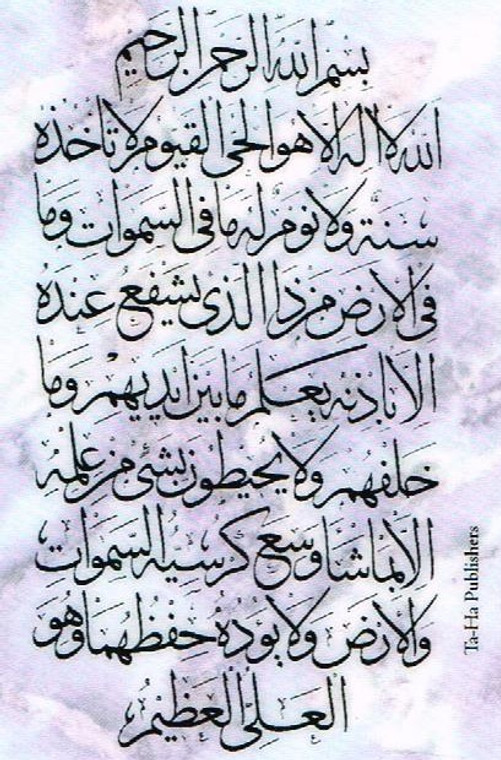 بسم الله الرحمن الرحيم
الله لا اله الا هو الحي القيوم لا تاخذه
سنة ولا نوم له ما في السموات وما
في الارض من ذا الذي يشفع عنده
الا باذنه يعلم ما بين ايديهم وما
خلفهم ولا يحيطون بشئ من علمه
الا بما شا وسع كرسيه السموات
والارض ولا يؤده حفظهما وهو
العلي العظيم
Ta-Ha Publishers